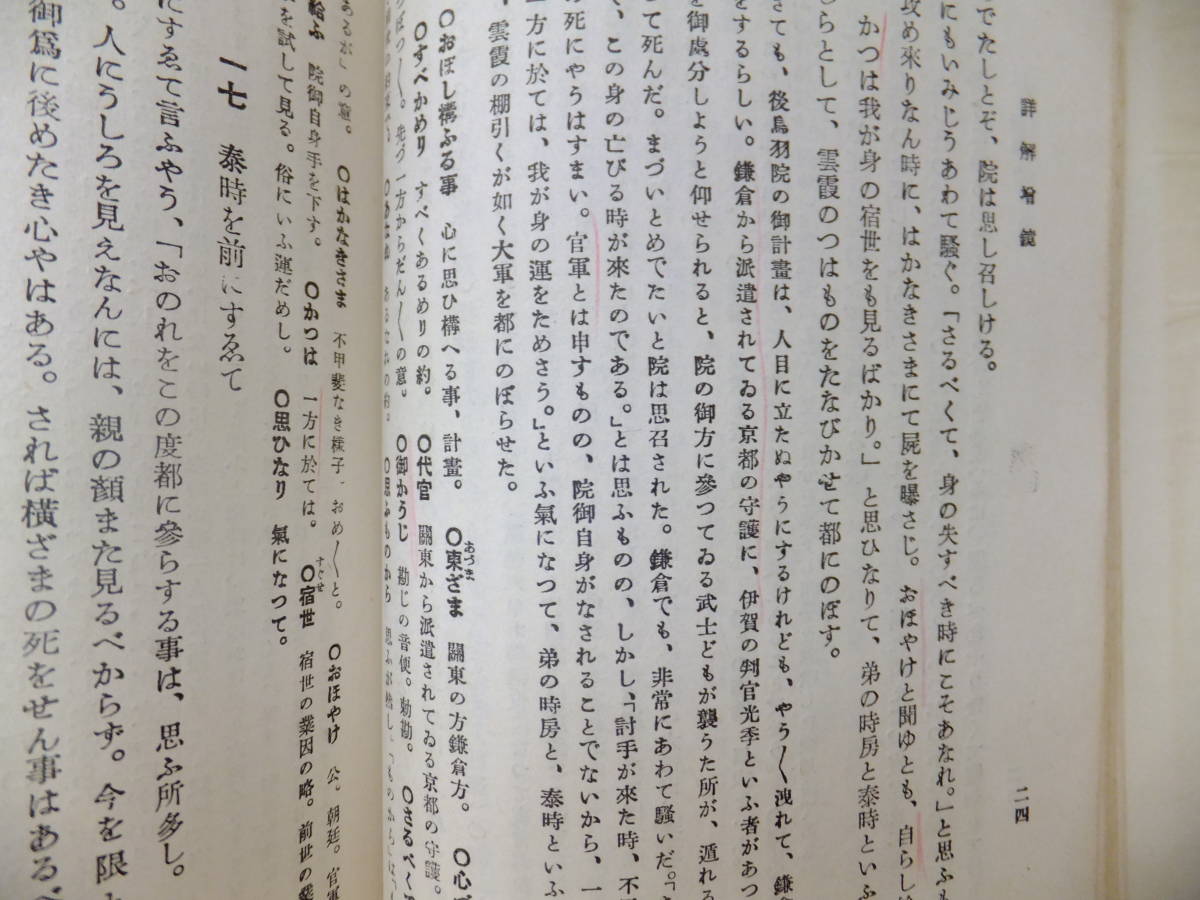 詳解增鏡
二四
でたしとぞ、院は思し召しける。
にもいみじうあわて騷ぐ。「さるべくて、身の失すべき時にこそあなれ。」と思ふも
攻め來りなん時に、はかなきさまにて屍を曝さじ。おほやけと聞ゆとも、自らし給
かつは我が身の宿世をも見るばかり。」と思ひなりて、弟の時房と泰時といふ
らとして、雲霞のつはものをたなびかせて都にのぼす。
さても、後鳥羽院の御計畫は、人目に立たぬやうにするけれども、やう〳〵洩れて、鎌
をするらしい。鎌倉から派遣されてゐる京都の守護に、伊賀の判官光季といふ者があつ
を御處分しようと仰せられると、院の御方に參つてゐる武士どもが襲うた所が、遁れる
て死んだ。まづいとめでたいと院は思召された。鎌倉でも、非常にあわて騷いだ。「さ
く、この身の亡びる時が來たのである。」とは思ふものの、しかし、「討手が來た時、不
の死にやうはすまい。官軍とは申すものの、院御自身がなされることでないから、一
方に於ては、我が身の運をためさう。」といふ氣になつて、弟の時房と、泰時といふ
雲霞の棚引くが如く大軍を都にのぼらせた。
〇おぼし構ふる事 心に思ひ構へる事、計畫。 〇東ざま 關東の方鎌倉方。 〇心ぼ
〇すべかめり すべくあるめりの約。 〇代官 關東から派遣されてゐる京都の守護。
先づ一方からだん〳〵の意。 〇御かうじ 勘じの音便。勅勘。 〇さるべく
〇思ふものから
あるが」の意。 〇はかなきさま 不甲斐なき樣子、おめ〳〵と。 〇おほやけ 公。朝廷。官軍
給ふ 院御自身手を下す。 〇かつは 一方に於ては。 〇宿世 宿世の業因の略。前世の業
を試して見る。俗にいふ運だめし。 〇思ひなり 氣になって。
一七 泰時を前にすゑて
にすゑて言ふやう、「おのれをこの度都に參らする事は、思ふ所多し。
。人にうしろを見えなんには、親の顏また見るべからず。今を限
御爲に後めたき心やはある。されば橫ざまの死をせん事はあるべ